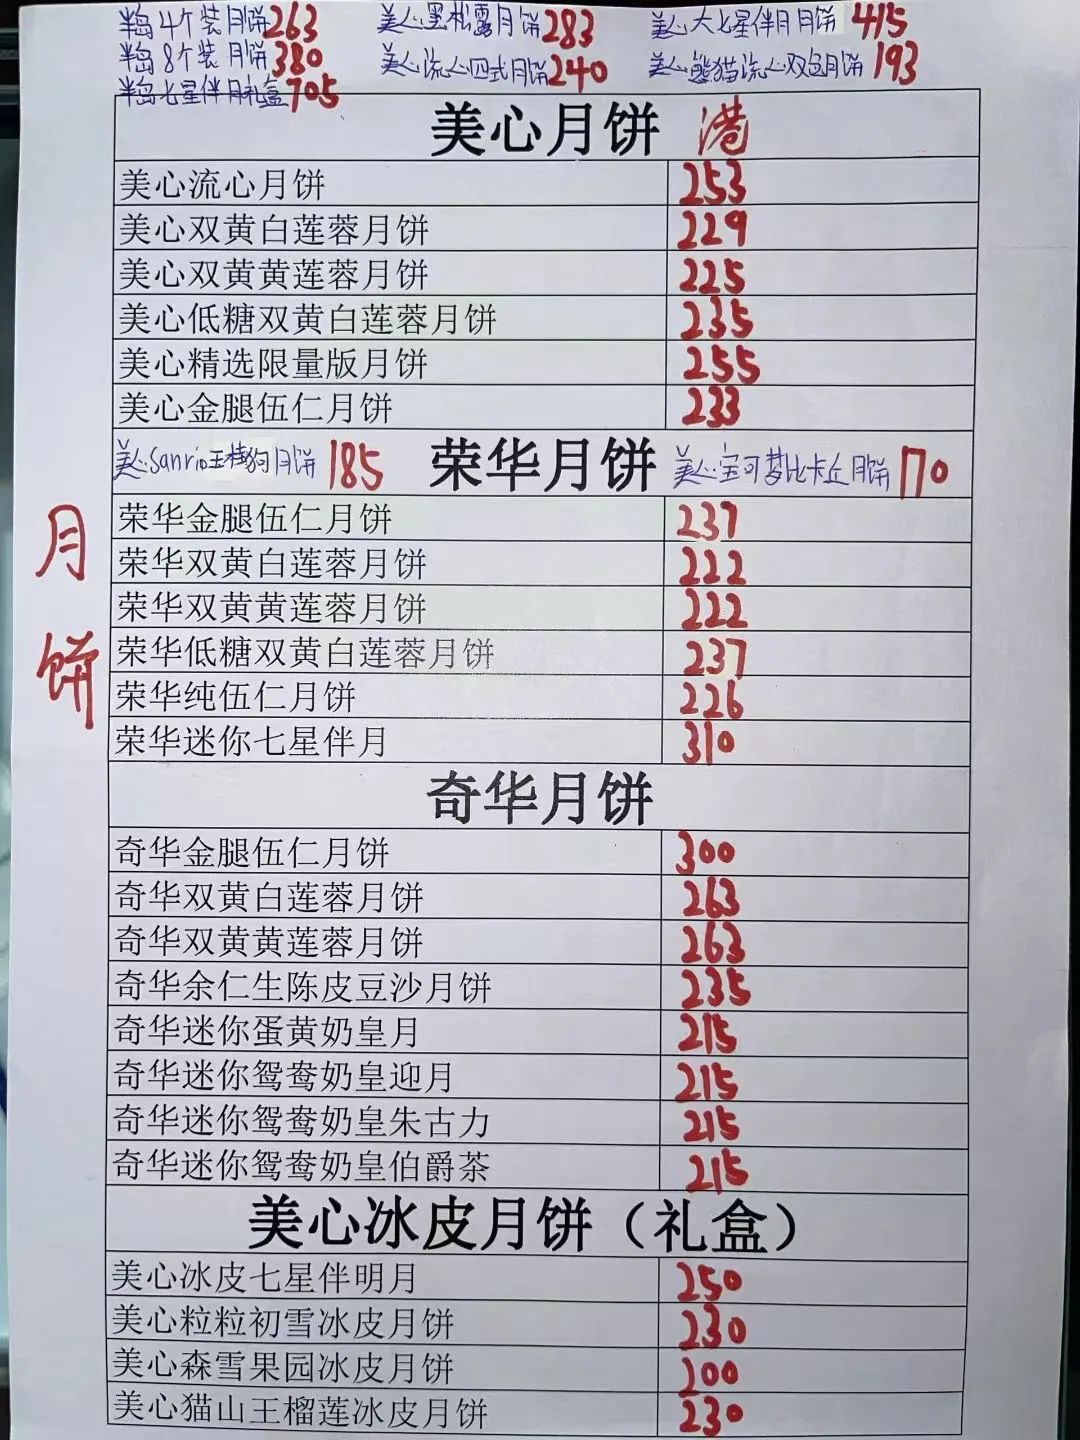 半岛4个装月饼263 美心黑松露月饼283 美心大七星伴月月饼415
半岛8个装月饼380 美心流心四式月饼240 美心熊猫流心双色月饼193
半岛七星伴月礼盒705
美心月饼 港
美心流心月饼 253
美心双黄白莲蓉月饼 229
美心双黄黄莲蓉月饼 225
美心低糖双黄白莲蓉月饼 235
美心精选限量版月饼 255
美心金腿伍仁月饼 233
美心Sanrio玉桂狗月饼 185 荣华月饼 美心宝可梦比卡丘月饼 170
荣华金腿伍仁月饼 237
荣华双黄白莲蓉月饼 222
荣华双黄黄莲蓉月饼 222
荣华低糖双黄白莲蓉月饼 237
荣华纯伍仁月饼 226
荣华迷你七星伴月 310
月饼
奇华月饼
奇华金腿伍仁月饼 300
奇华双黄白莲蓉月饼 263
奇华双黄黄莲蓉月饼 263
奇华余仁生陈皮豆沙月饼 235
奇华迷你蛋黄奶皇月 215
奇华迷你鸳鸯奶皇迎月 215
奇华迷你鸳鸯奶皇朱古力 215
奇华迷你鸳鸯奶皇伯爵茶 215
美心冰皮月饼（礼盒）
美心冰皮七星伴明月 250
美心粒粒初雪冰皮月饼 230
美心森雪果园冰皮月饼 200
美心猫山王榴莲冰皮月饼 230